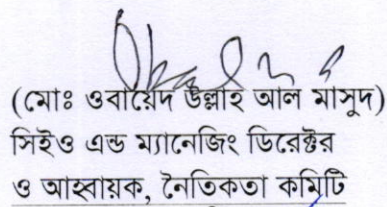 (মোঃ ওবায়েদ উল্লাহ আল মাসুদ)
সিইও এন্ড ম্যানেজিং ডিরেক্টর
ও আহ্বায়ক, নৈতিকতা কমিটি